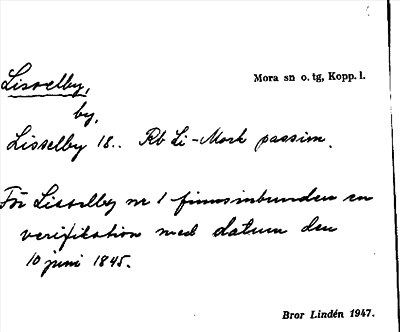 Lisselby,
Mora sn o. tg, Kopp. l.
by,
Lisselby 18.. Rb Li-Mork passim.
För Lisselby nr 1 finns inbunden en
verifikation med datum den
10 juni 1845.
Bror Lindén 1947.